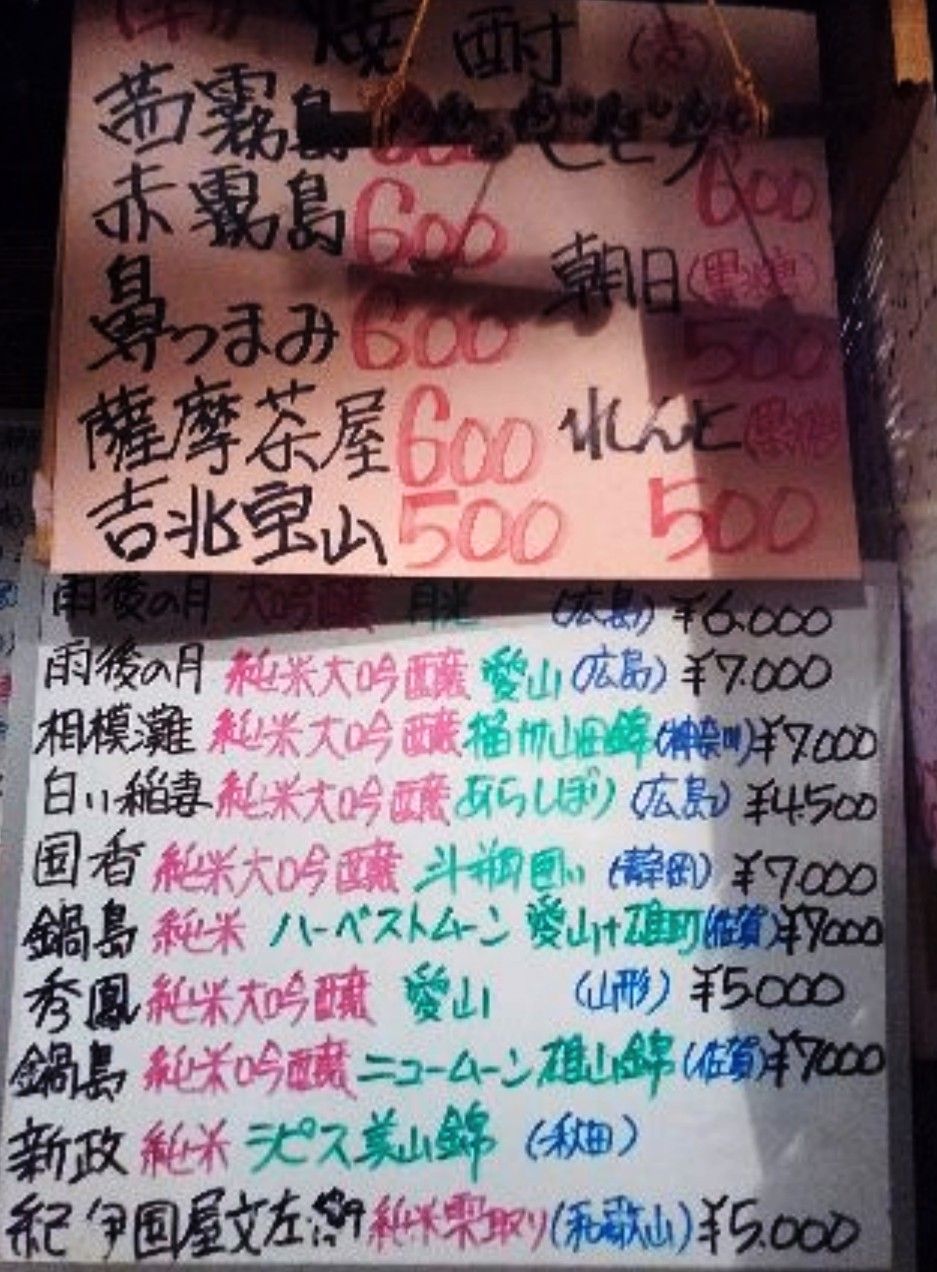 (芋) 焼酎 (麦)
茜霧島 600
赤霧島 600
鼻つまみ 600
薩摩茶屋 600
吉兆宝山 500
600
朝日 (黒糖)
500
れんと (黒糖)
500
雨後の月 大吟醸 月光 (広島) ¥6.000
雨後の月 純米大吟醸 愛山 (広島) ¥7.000
相模灘 純米大吟醸 播州山田錦 (神奈川) ¥7.000
白い稲妻 純米大吟醸 あらしぼり (広島) ¥4.500
国香 純米大吟醸 斗瓶囲い (静岡) ¥7.000
鍋島 純米 ハーベストムーン 愛山+雄町 (佐賀) ¥7000
秀鳳 純米大吟醸 愛山 (山形) ¥5.000
鍋島 純米吟醸 ニュームーン 雄山錦 (佐賀) ¥7000
新政 純米 ラピス 美山錦 (秋田)
紀伊国屋文左衛門 純米雫取り (和歌山) ¥5.000